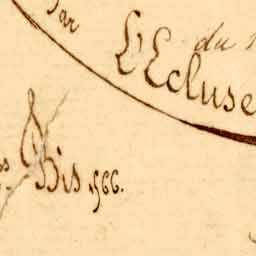 par
L'Ecluse
du
Bis 1566.